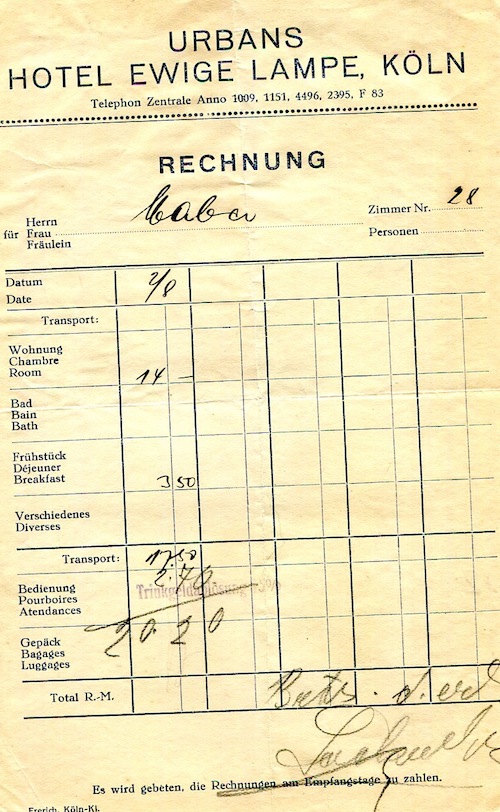 URBANS
HOTEL EWIGE LAMPE, KÖLN
Telephon Zentrale Anno 1009, 1151, 4496, 2395, F 83
RECHNUNG
Herrn
für Frau
Fräulein
Zimmer Nr. 28
Personen
Datum
Date
2/8
Transport:
Wohnung
Chambre
Room 14 —
Bad
Bain
Bath
Frühstück
Déjeuner
Breakfast 3 50
Verschiedenes
Diverses
Transport: 17.50
2.70
Bedienung
Pourboires
Atendances
Trinkgeldablösung
20.20
Gepäck
Bagages
Luggages
Total R.-M.
Es wird gebeten, die Rechnungen am Empfangstage zu zahlen.
Frerich, Köln-Ki.